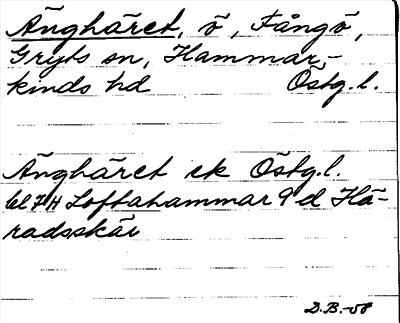 Änghäret, ö, Fångö,
Gryts sn, Hammar-
kinds hd Östg.l.
Änghäret ek Östg.l.
bl 7H Loftahammar 9 d Hä-
radsskär
D.B.-58